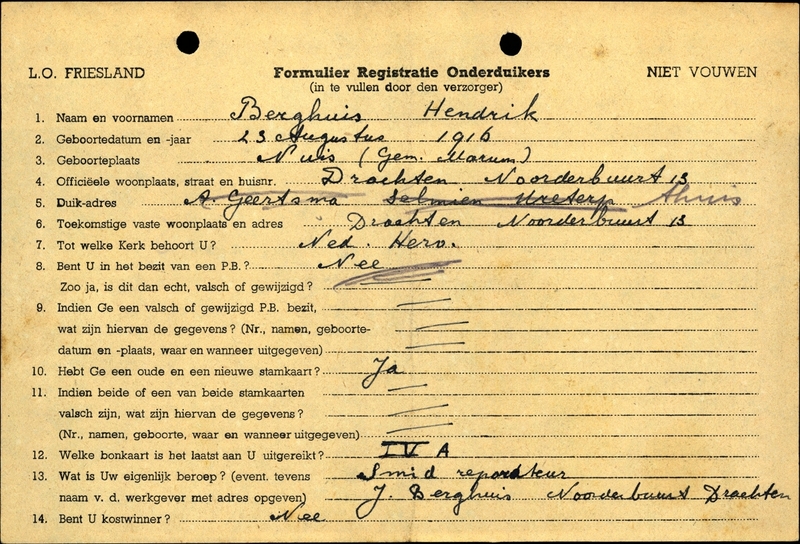 L.O. FRIESLAND Formulier Registratie Onderduikers NIET VOUWEN
(in te vullen door den verzorger)
1. Naam en voornamen Berghuis Hendrik
2. Geboortedatum en -jaar 23 Augustus 1916
3. Geboorteplaats Nuis (Gem. Marum)
4. Officiëele woonplaats, straat en huisnr. Drachten Noorderbuurt 13
5. Duik-adres A. Geertsma Selmien Ureterp thuis
6. Toekomstige vaste woonplaats en adres Drachten Noorderbuurt 13
7. Tot welke Kerk behoort U? Ned. Herv.
8. Bent U in het bezit van een P.B.? Nee
Zoo ja, is dit dan echt, valsch of gewijzigd?
9. Indien Ge een valsch of gewijzigd P.B. bezit,
wat zijn hiervan de gegevens? (Nr., namen, geboorte-
datum en -plaats, waar en wanneer uitgegeven)
10. Hebt Ge een oude en een nieuwe stamkaart? Ja
11. Indien beide of een van beide stamkaarten
valsch zijn, wat zijn hiervan de gegevens?
(Nr., namen, geboorte, waar en wanneer uitgegeven)
12. Welke bonkaart is het laatst aan U uitgereikt? IV A
13. Wat is Uw eigenlijk beroep? (event. tevens Smid reparateur
naam v. d. werkgever met adres opgeven) J. Berghuis Noorderbuurt Drachten
14. Bent U kostwinner? Nee